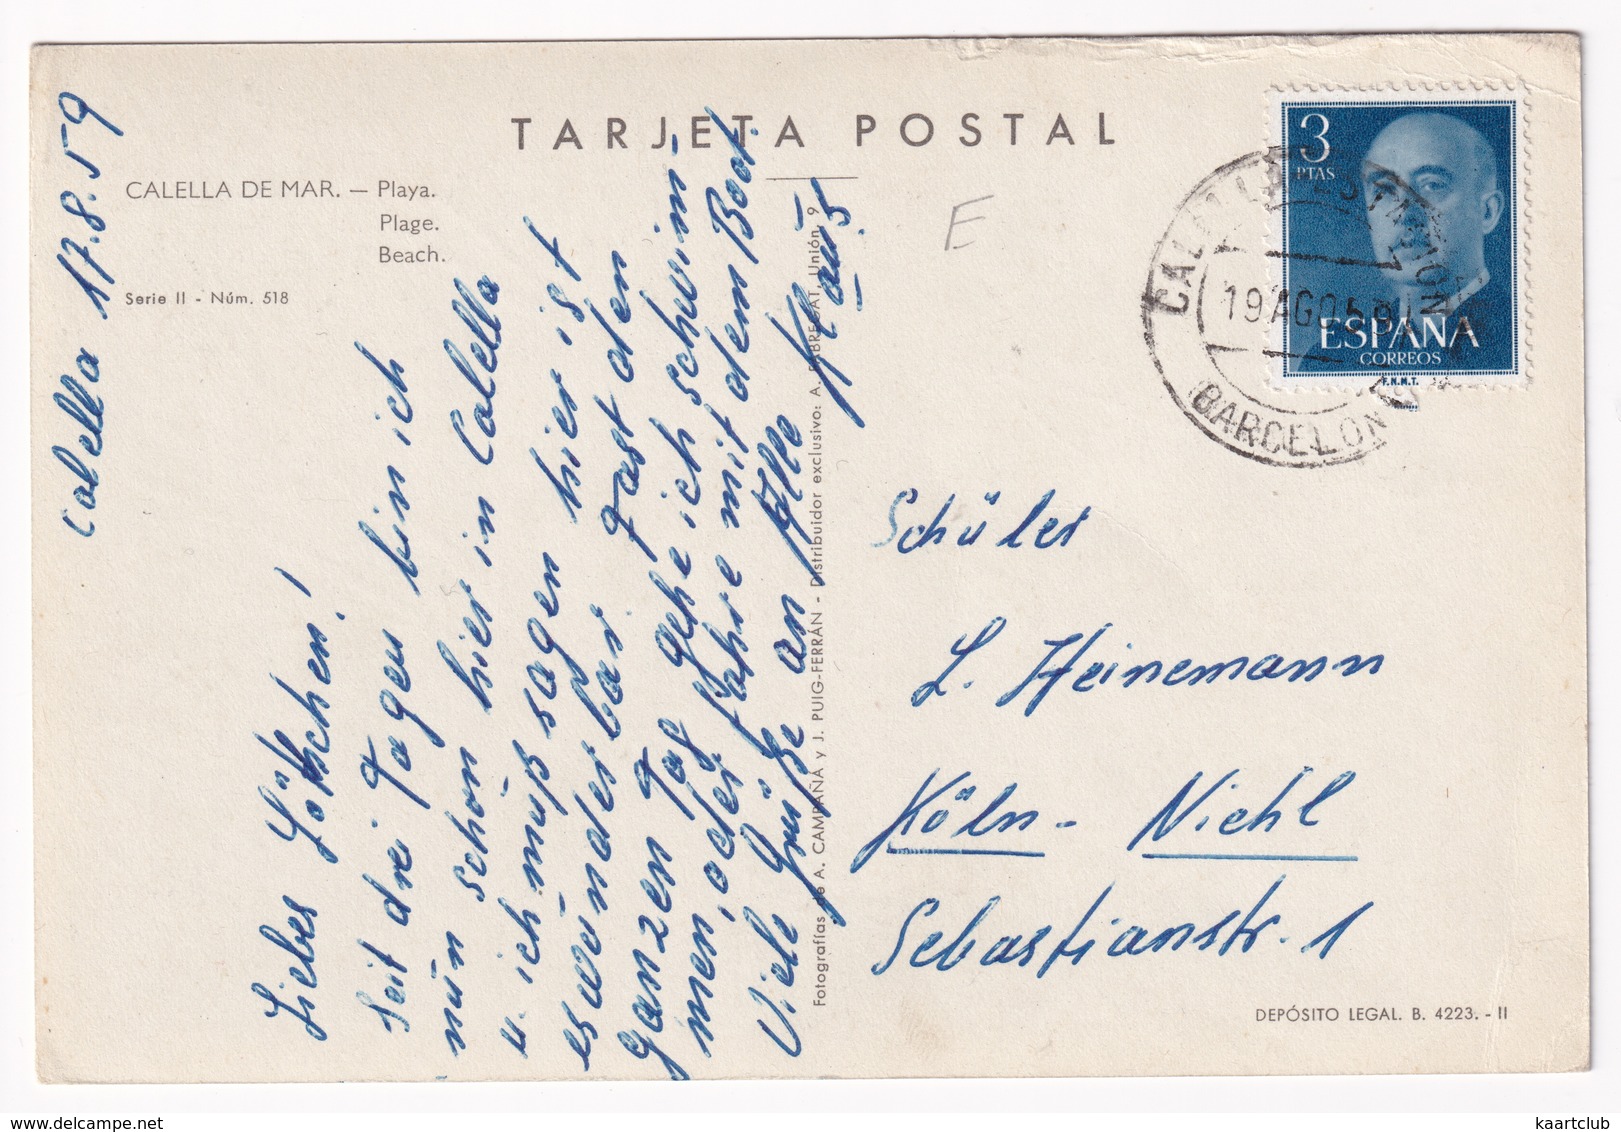 TARJETA POSTAL
CALELLA DE MAR. — Playa.
Plage.
Beach.
Serie II - Núm. 518
Calella 17.8.59
Liebes Lottchen!
Seit drei Tagen bin ich
nun schon hier in Calella
u. ich muß sagen hier ist
es wunderbar. Fast den
ganzen Tag gehe ich schwim-
men, oder fahre mit dem Boot.
Viele Grüße an Alle Klaus
Fotografías de A. CAMPAÑA y J. PUIG-FERRÁN - Distribuidor exclusivo: A. FABREGAT, Unión, 9
E
3
PTAS
ESPAÑA
CORREOS
F.N.M.T.
19 AGO 59
BARCELON
Schüler
L. Heinemann
Köln - Niehl
Sebastianstr. 1
DEPÓSITO LEGAL. B. 4223. - II
kaartclub